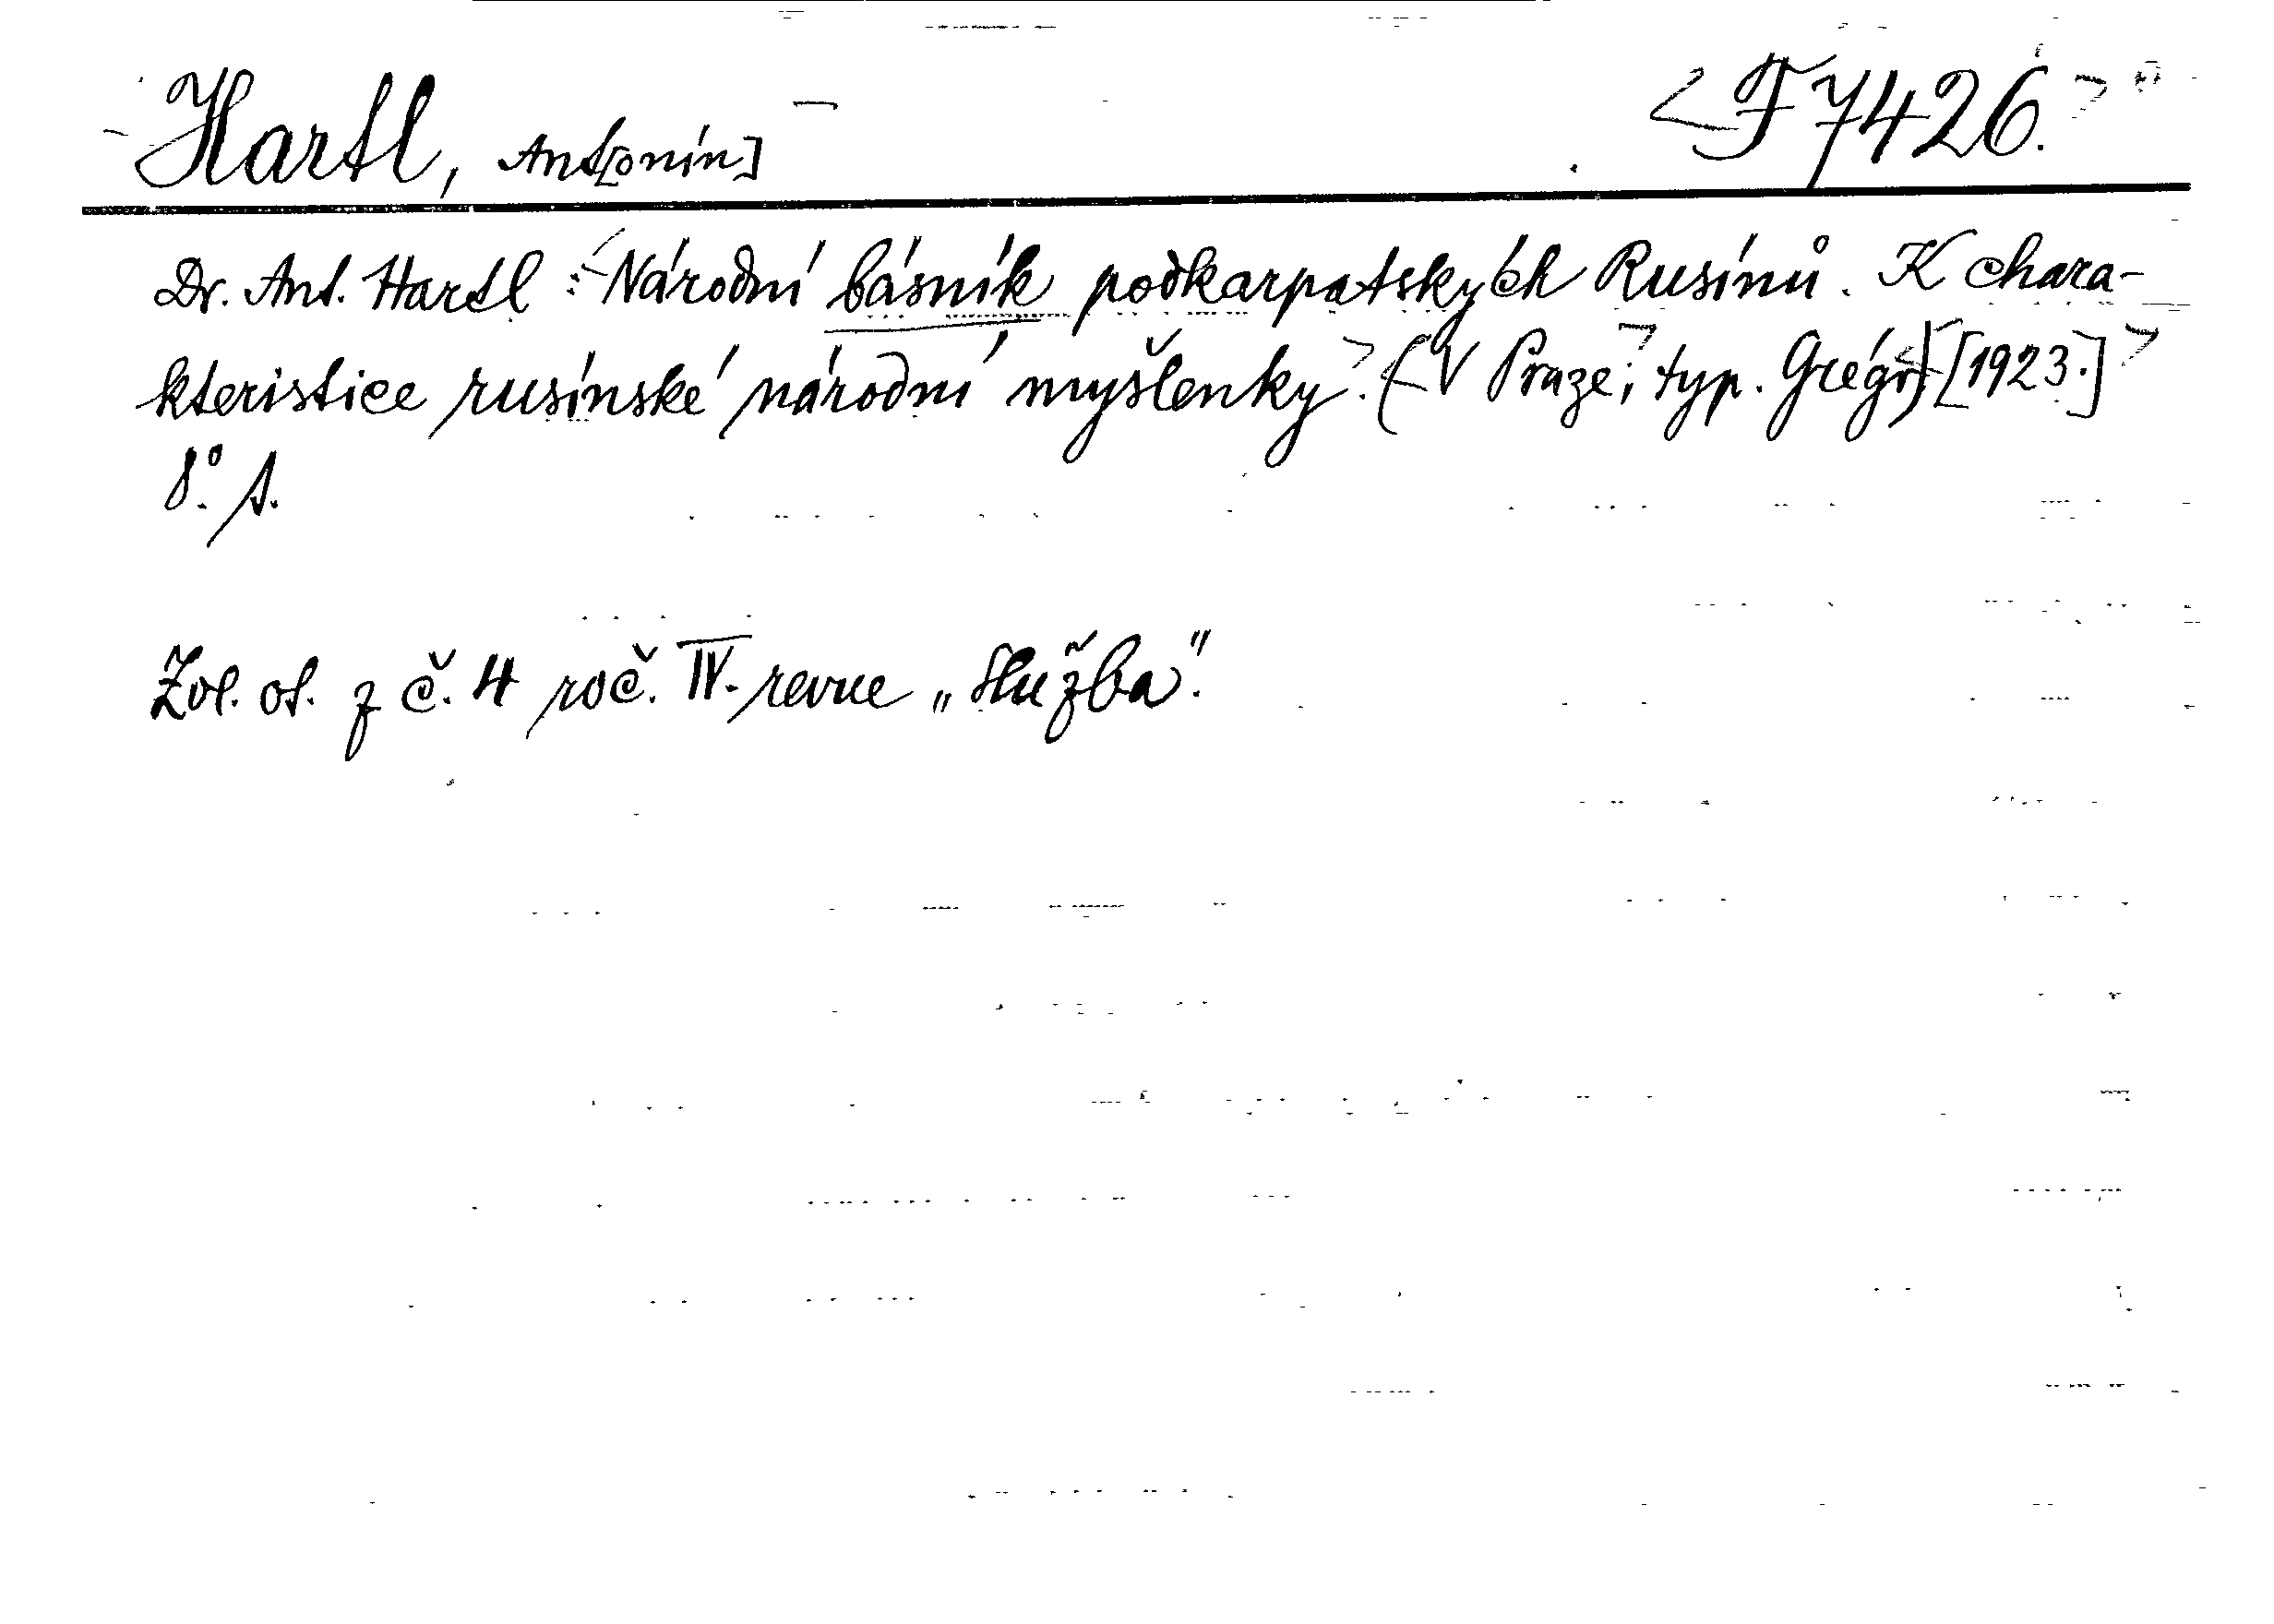 Hartl, Ant[onín] F 7426.
Dr. Ant. Hartl: Národní básník podkarpatských Rusínů. K chara-
kteristice rusínské národní myšlenky. (V Praze, typ. Grégr) [1923.]
8°. s.
Zvl. ot. z č. 4 roč. IV. revue „Služba".